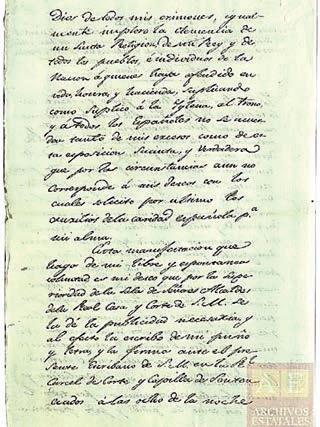 Dios de todos mis crimenes, igual-
mente imploro la clemencia de
mi Santa Religion, de mi Rey y de
todos los pueblos, é individuos de la
Nacion á quienes haya ofendido en
vida, honra, y hacienda, suplicando
como suplico á la Yglesia, al Trono,
y a todos los Españoles no se acuer-
dan tanto de mis excesos como de es-
ta exposicion Sucinta, y Verdadera
que por las circunstancias aun no
corresponde á mis deseos con los
cuales solicito por ultimo los
auxilios de la caridad española pª
mi alma.
Esta manifestacion que
hago de mi libre y espontanea
voluntad es mi deseo que por la Supe-
rioridad de la Sala de Señores Alcaldes
de la Real Casa y Corte de S.M. se
le dé la publicidad necesaria, y
al efecto la escribo de mi puño
y letra, y la firmo ante el pre-
sente Escribano de S.M. en la Rl.
Carcel de Corte y Capilla de Senten-
ciados á las ocho de la noche
ARCHIVOS
ESTATALES